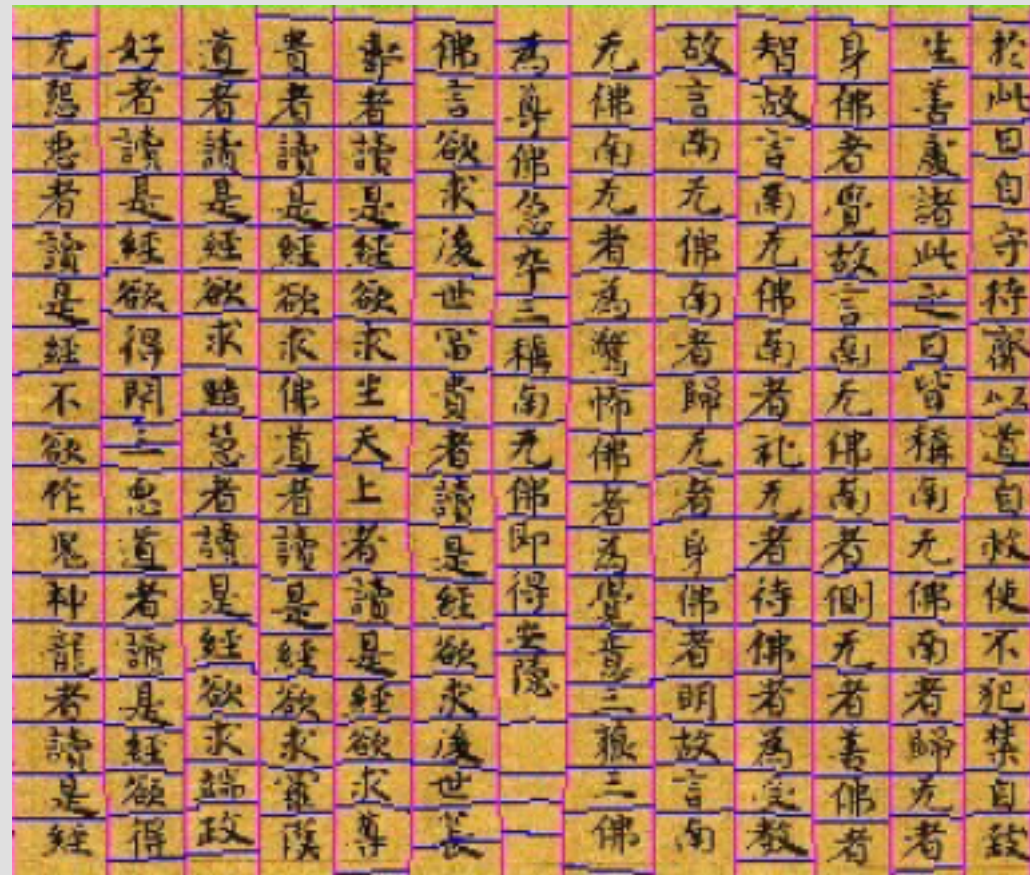 於此日自守持齋以道自救使不犯禁自致
生善處諸此之日皆稱南无佛南者歸无者
身佛者覺故言南无佛南者側无者善佛者
智故言南无佛南者礼无者待佛者為受教
故言南无佛南者歸无者身佛者明故言南
无佛南无者為驚怖佛者為覺意三狼三佛
為尊佛忽卒三稱南无佛即得安隱
佛言欲求後世富貴者讀是經欲求後世長
壽者讀是經欲求生天上者讀是經欲求尊
貴者讀是經欲求佛道者讀是經欲求羅漢
道者讀是經欲求黠慧者讀是經欲求端政
好者讀是經欲得閉三惡道者讀是經欲得
无怨惡者讀是經不欲作鬼神龍者讀是經